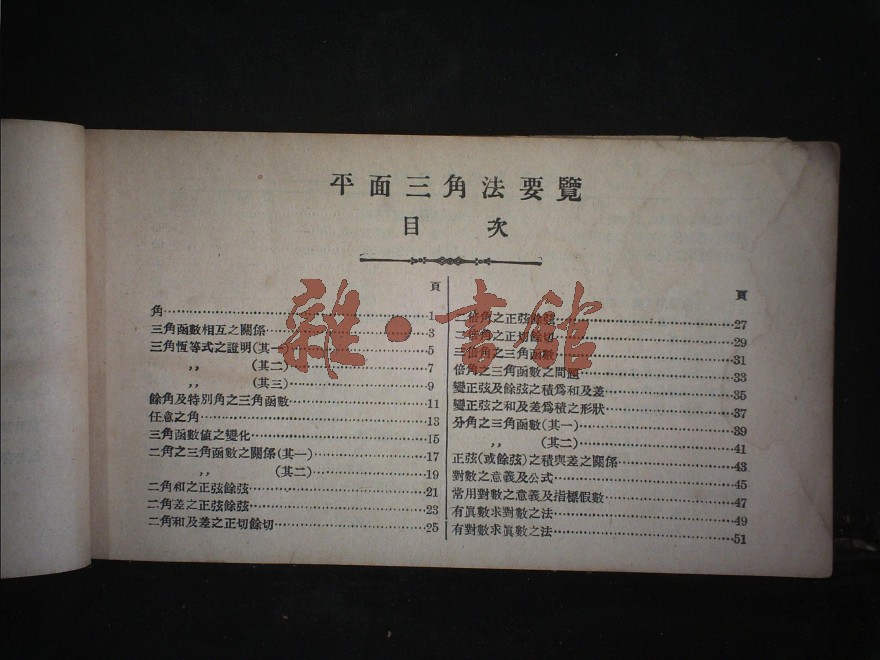 平面三角法要覽
目次
頁
角……1
三角函數相互之關係……3
三角恆等式之證明(其一)……5
,, (其二)……7
,, (其三)……9
餘角及特別角之三角函數……11
任意之角……13
三角函數値之變化……15
二角之三角函數之關係(其一)……17
,, (其二)……19
二角和之正弦餘弦……21
二角差之正弦餘弦……23
二角和及差之正切餘切……25
頁
二倍角之正弦餘弦……27
二倍角之正切餘切……29
三倍角之三角函數……31
倍角之三角函數之問題……33
變正弦及餘弦之積爲和及差……35
變正弦之和及差爲積之形狀……37
分角之三角函數(其一)……39
,, (其二)……41
正弦(或餘弦)之積與差之關係……43
對數之意義及公式……45
常用對數之意義及指標假數……47
有眞數求對數之法……49
有對數求眞數之法……51
雜·書館